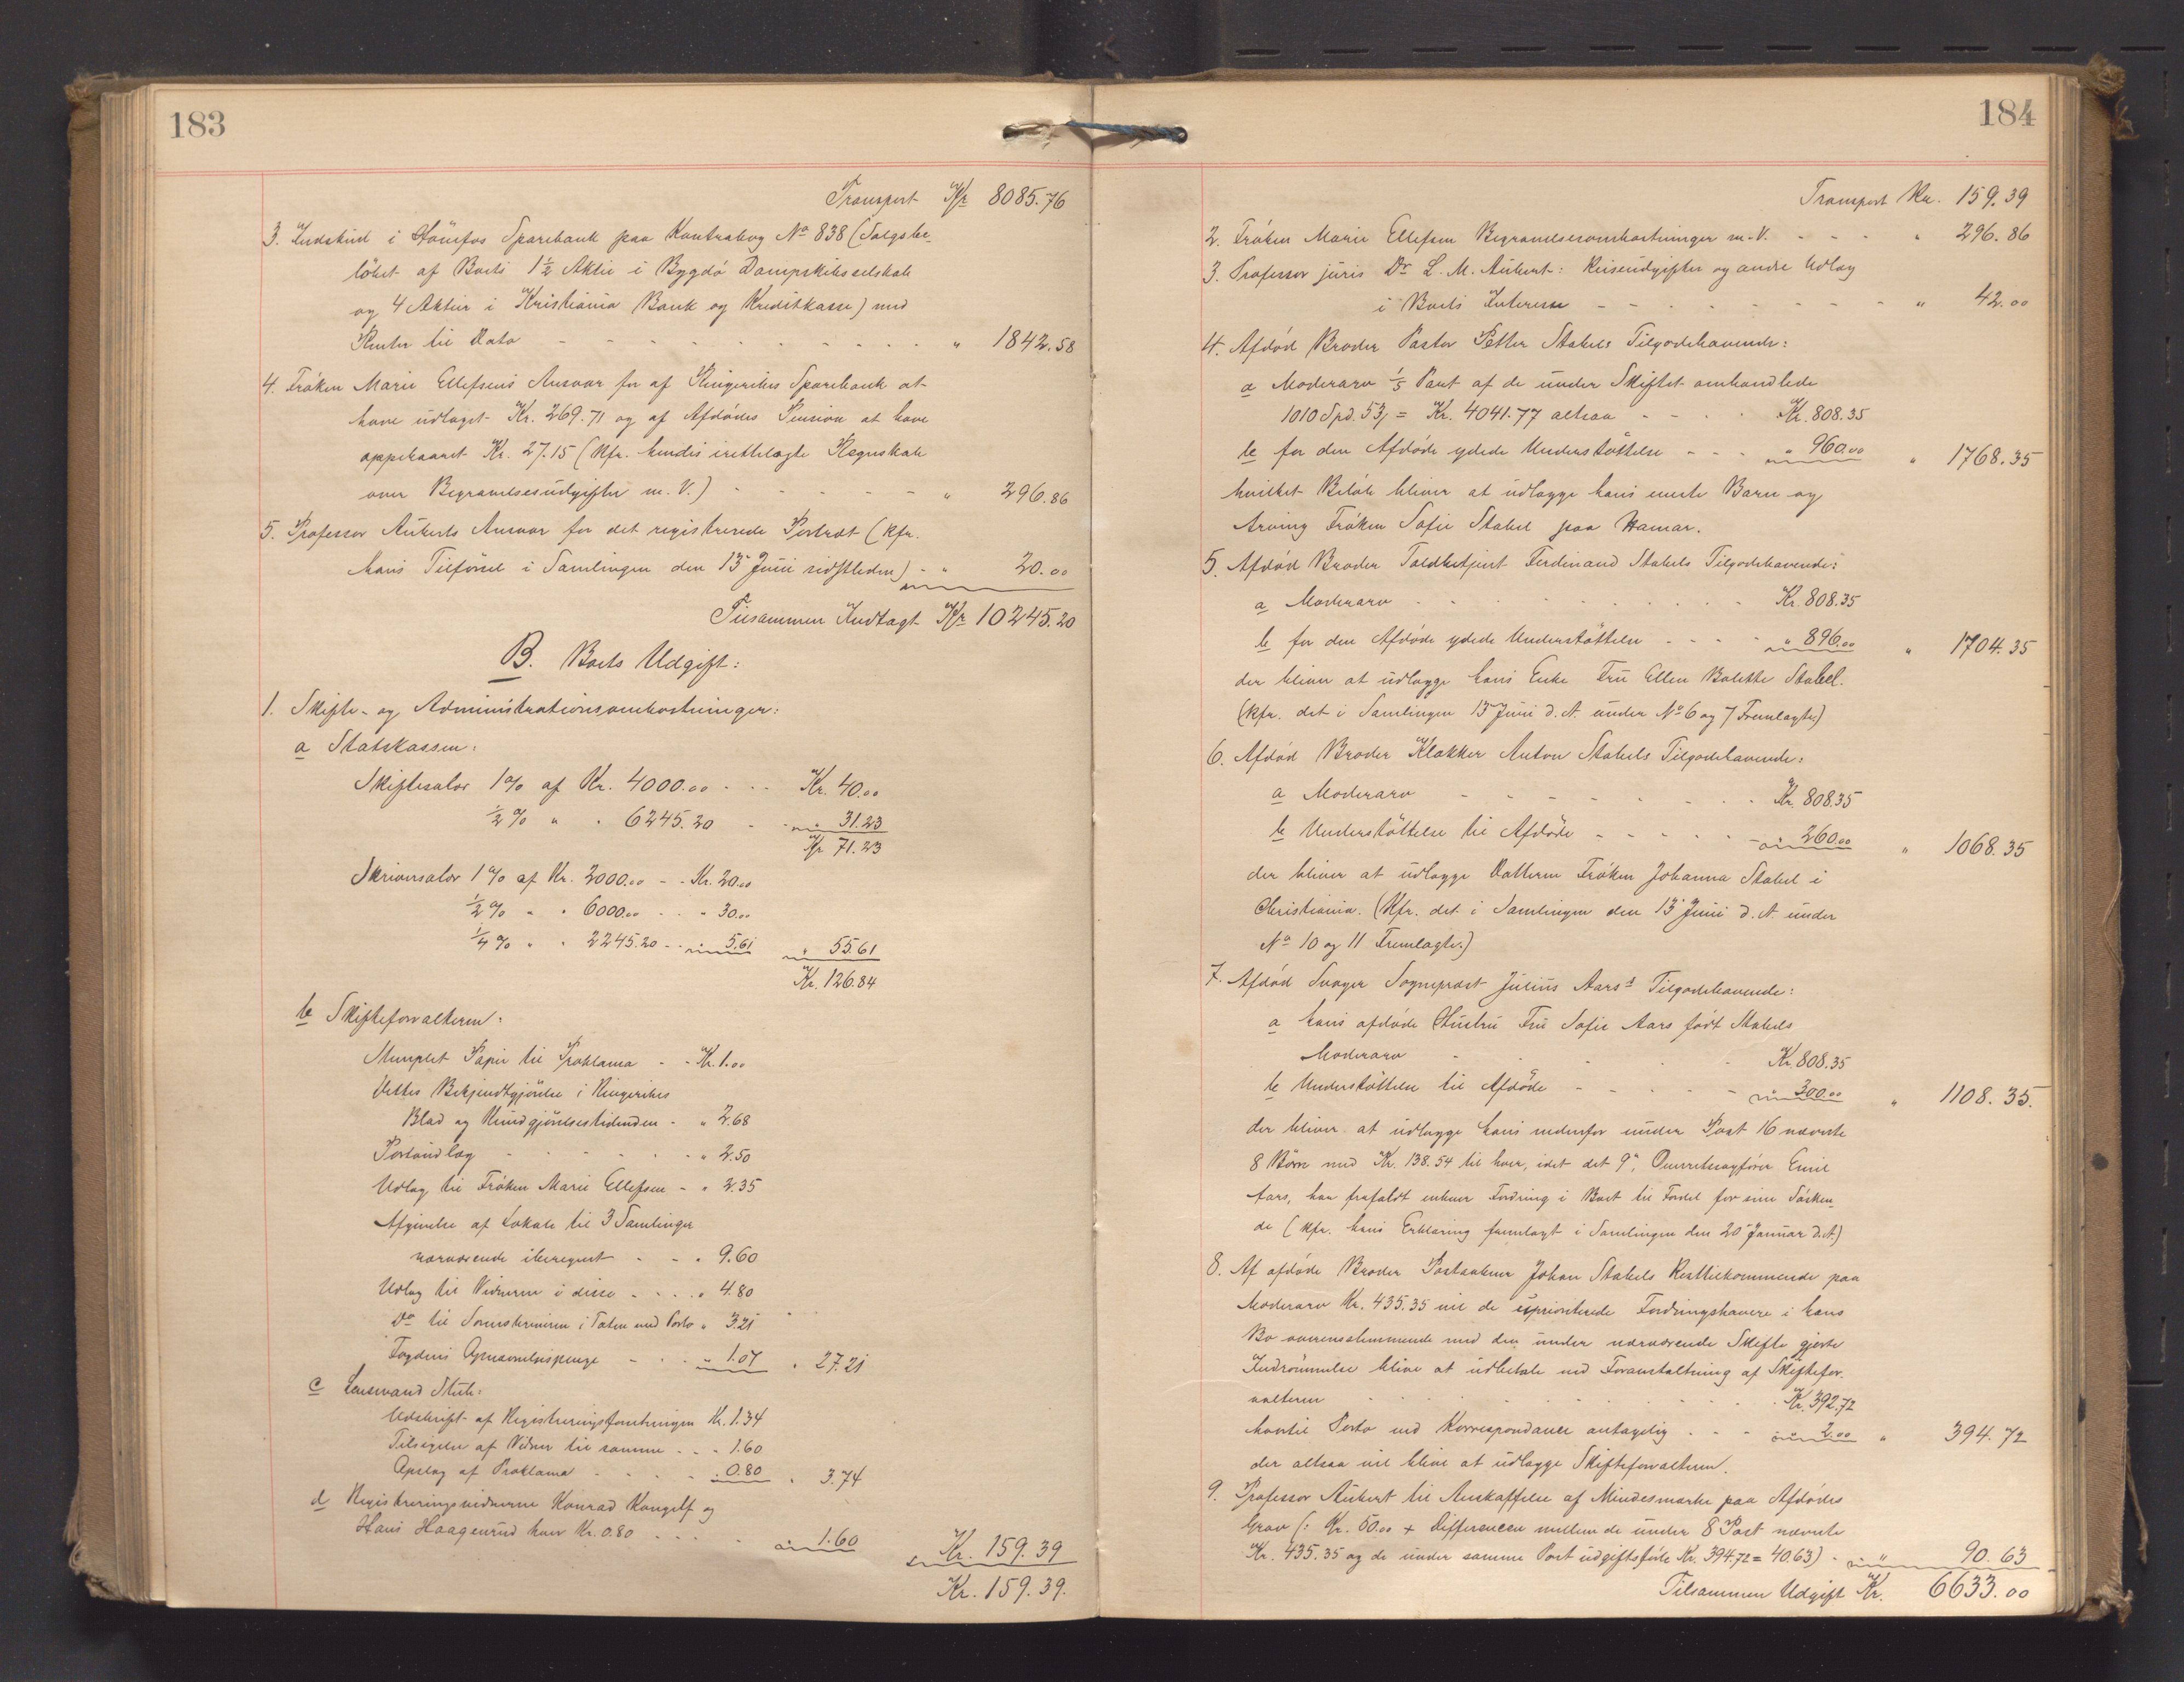 183
Transport Kr 8085.76
3. Indskud i Hönefos Sparebank paa Kontrabog No 838 (Salgsbe-
löbet af Boets 1 1/2 Aktie i Bygdö Dampskibsselskab
og 4 Aktier i Kristiania Bank og Kreditkasse) med
Renter til Dato - - - - - - - - - " 1842.58
4. Fröken Marie Ellefsens Ansvar for af Ringerikes Sparebank at
have udtaget Kr. 269.71 og af Afdödes Pension at have
oppebaaret Kr. 27.15 (Kfr. hendes irettelagte Regnskab
over Begravelsesudgifter m. V.) - - - - - " 296.86
5. Professor Auberts Ansvar for det registrerede Portræt (kfr.
hans Tilförsel i Samlingen den 13de Juni sidstleden) - " 20.00
Tilsammen Indtægt Kr 10245.20
B. Boets Udgift:
1. Skifte- og Administrationsomkostninger:
a Statskassen:
Skiftesalær 1 % af Kr. 4000.00 - - - Kr. 40.00
1/2 % " " 6245.20 - - " 31.23
Kr 71.23
Skriversalær 1 % af Kr. 2000.00 - - Kr. 20.00
1/2 % " " 6000.00 - - " 30.00
1/4 % " " 2245.20 - - " 5.61 " 55.61
Kr. 126.84
b Skifteforvalteren:
Stemplet Papir til Proklama - - Kr. 1.00
Dettes Bekjendtgjörelse i Ringerikes
Blad og Kundgjörelsestidenden - " 2.68
Portoudlæg - - - - - " 2.50
Udlæg til Fröken Marie Ellefsen - " 2.35
Afgivelse af Lokale til 3 Samlinger
nærværende iberegnet - - " 9.60
Udlæg til Vidnerne i disse - - - - " 4.80
Do til Sorenskriveren i Toten med Porto " 3.21
Fogdens Opnævnelsespenge - - - " 1.07 " 27.21
c Lensmand Stub:
Udskrift af Registreringsforretningen Kr. 1.34
Tilsigelse af Vidner til samme - - " 1.60
Opslag af Proklama - - - - " 0.80 " 3.74
d Registreringsvidnerne Konrad Kongelf og
Hans Haagensrud hver Kr. 0.80 - - - - " 1.60 Kr. 159.39
Kr. 159.39.
184
Transport Kr. 159.39
2. Fröken Marie Ellefsen Begravelsesomkostninger m. V. - - - " 296.86
3. Professor juris Dr L. M. Aubert: Reiseudgifter og andre Udlæg
i Boets Interesse - - - - - - - - " 42.00
4. Afdöd Broder Pastor Petter Stabels Tilgodehavende:
a Moderarv 1/5 Part af de under Skiftet omhandlede
1010 Spd. 53 β = Kr. 4041.77 altsaa - - - - Kr. 808.35
b for den Afdöde ydede Understöttelse - - - " 960.00 " 1768.35
hvilket Belöb bliver at udlægge hans eneste Barn og
Arving Fröken Sofie Stabel paa Hamar.
5. Afdöd Broder Toldbetjent Ferdinand Stabels Tilgodehavende:
a Moderarv - - - - - - - - Kr. 808.35
b for den Afdöde ydede Understöttelse - - - - " 896.00 " 1704.35
der bliver at udlægge hans Enke Fru Ellen Bolette Stabel.
(kfr. det i Samlingen 13de Juni d. A. under No 6 og 7 Fremlagte)
6. Afdöd Broder Klokker Anton Stabels Tilgodehavende:
a Moderarv - - - - - - - - Kr. 808.35
b Understöttelse til Afdöde - - - - - " 260.00 " 1068.35
der bliver at udlægge Datteren Fröken Johanna Stabel i
Christiania. (Kfr. det i Samlingen den 13de Juni d. A. under
No 10 og 11 Fremlagte.)
7. Afdöd Svoger Sogneprest Julius Aars's Tilgodehavende:
a hans afdöde Hustru Fru Sofie Aars född Stabels
Moderarv - - - - Kr. 808.35
b Understöttelse til Afdöde - - - - - " 300.00 " 1108.35.
der bliver at udlægge hans nedenfor under Post 16 nævnte
8 Börn med Kr. 138.54 til hver, idet det 9de, Overretssagförer Emil
Aars, har frafaldt enhver Fordring i Boet til Fordel for sine Södsken-
de (kfr. hans Erklæring fremlagt i Samlingen den 20de Januar d. A.)
8. Af afdöde Broder Postaabner Johan Stabels Resttilkommende paa
Moderarv Kr. 435.35 vil de uprioriterede Fordringshavere i hans
Bo overensstemmende med den under nærværende Skifte gjorte
Indrömmelse blive at udbetale ved Foranstaltning af Skiftefor-
valteren - - - - - - - - Kr. 392.72
hvortil Porto ved Korrespondancer antagelig - - - " 2.00 " 394.72
der altsaa vil blive at udlægge Skifteforvalteren.
9. Professor Aubert til Anskaffelse af Mindesmærke paa Afdödes
Grav (: Kr. 50.00 + Differencen mellem de under 8 Post nævnte
Kr. 435.35 og de under samme Post udgiftsförte Kr. 394.72 = 40.63) - " 90.63
Tilsammen Udgift Kr. 6633.00